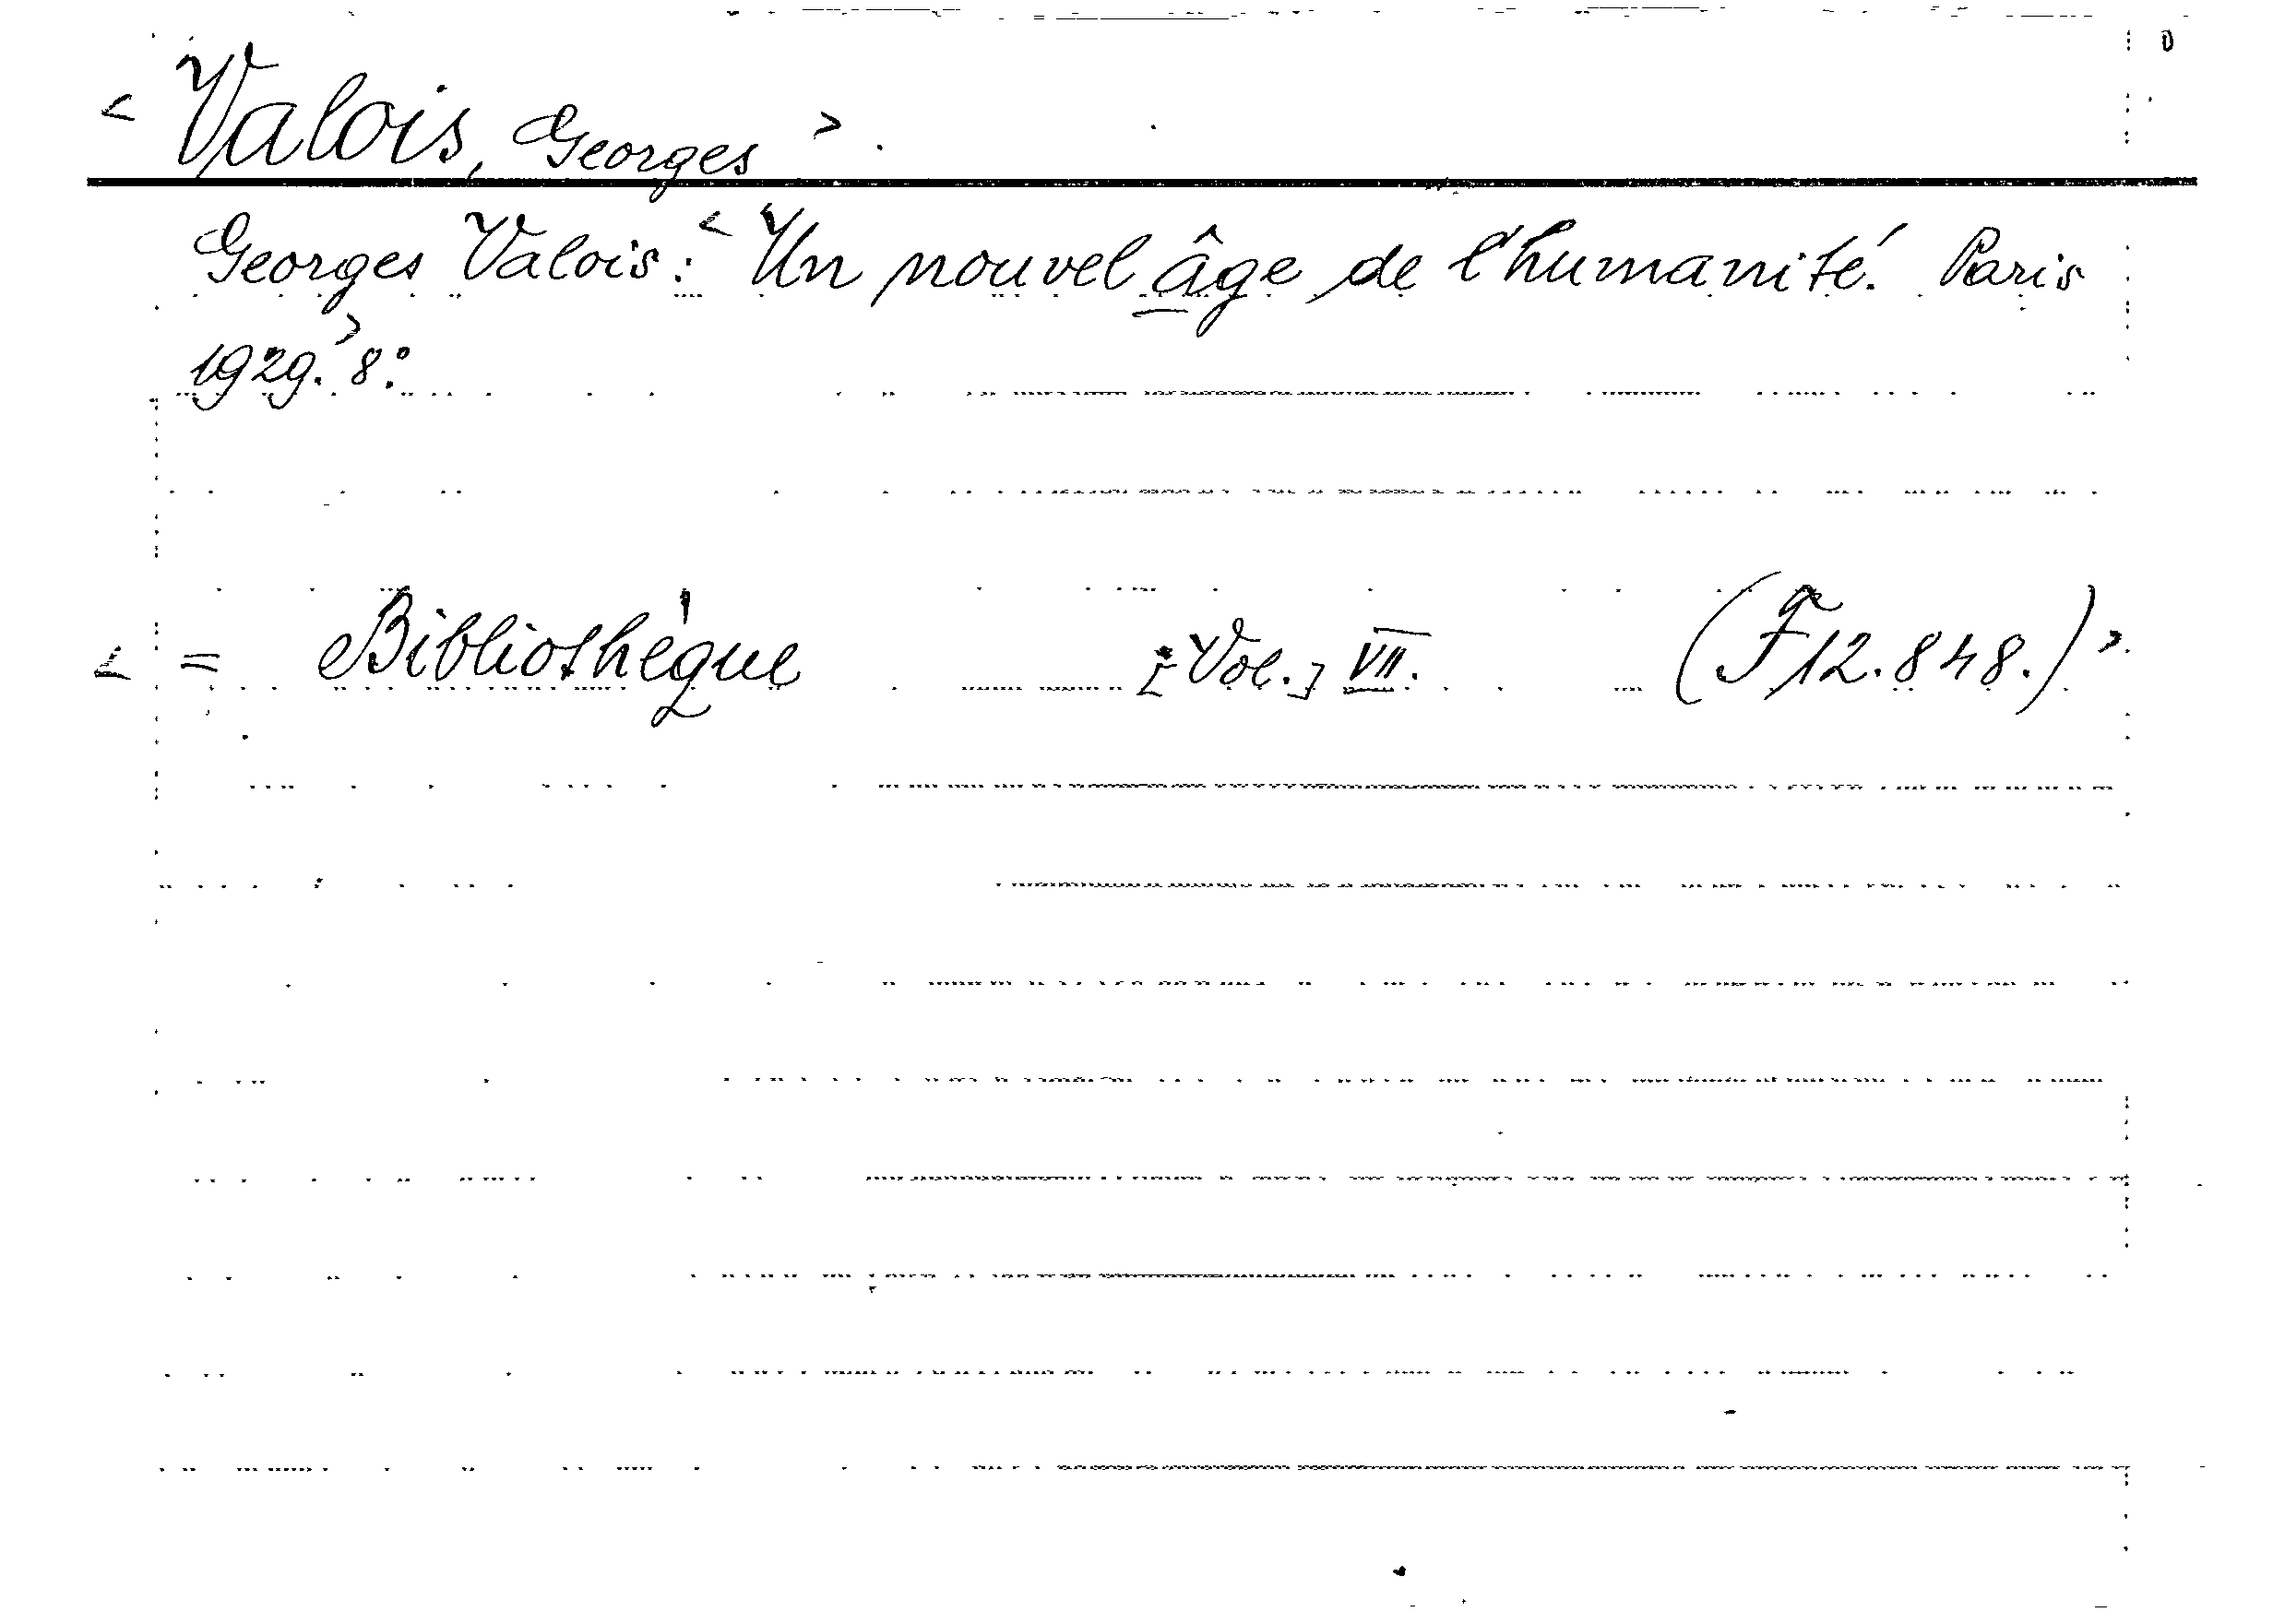 < Valois, Georges >.
Georges Valois: < Un nouvel âge de l'humanité. Paris
1929. > 8°.
< = Bibliothèque [Vol.] VII. (F 12.848.) >.